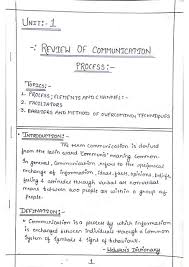 UNIT:- 1
-: REVIEW OF COMMUNICATION
PROCESS:-
TOPICS:-
1. PROCESS; ELEMENTS AND CHANNEL:-
2. FACILITATORS
3. BARRIERS AND METHOD OF OVERCOMING TECHNIQUES
• INTRODUCTION:-
The term communication is derived
from the latin word "Communis" meaning common.
In general, Communication refers to the reciprocal
exchange of information, ideas, facts, opinions, beliefs,
feeling & attitudes through verbal or nonverbal
means between two people or within a group of
people.
DEFINATIONS:-
• Communication is a process by which Information
is exchanged between individuals through a Common
System of symbols & signs of behaviour.
- Webster's Dictionary
1